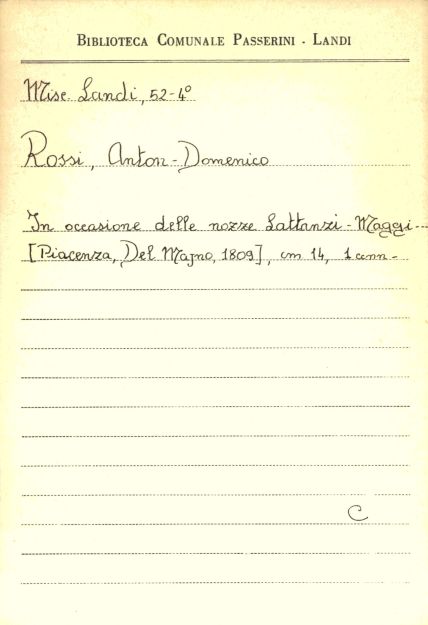 BIBLIOTECA COMUNALE PASSERINI - LANDI
Misc. Landi, 52-4°
Rossi, Anton-Domenico
In occasione delle nozze Lattanzi-Maggi---
[Piacenza, Del Majno, 1809], cm 14, 1 cnn-
C